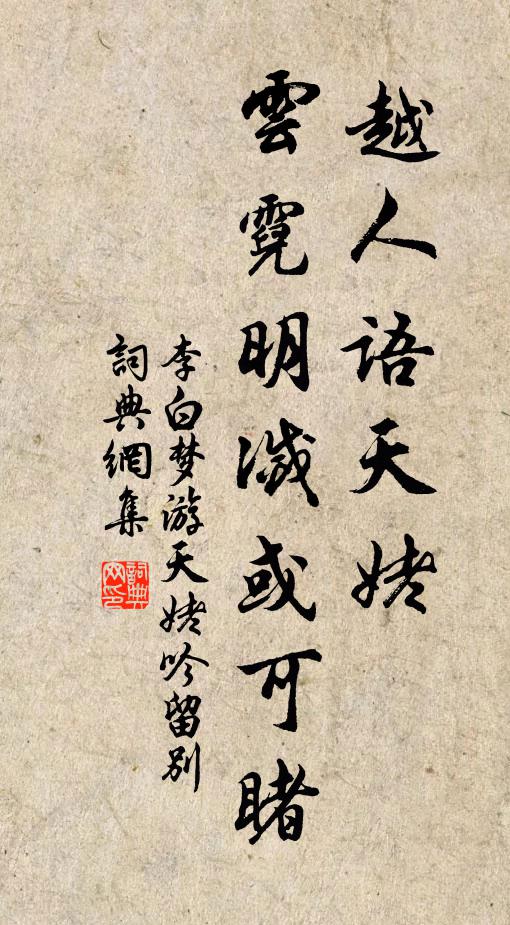 越人语天姥
雲霓明滅或可睹
李白梦游天姥吟留別
詞典網集
詞典网印